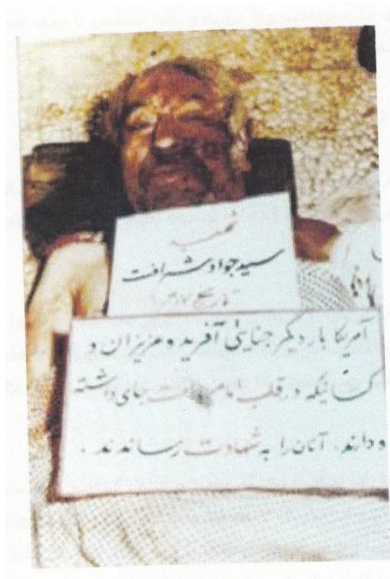 شهید
سید جواد شرافت
تاریخ
آمریکا بار دیگر جنایتی آفرید و عزیزان و
کسانیکه در قلب امام و امت جای داشته
و دارند، آنان را به شهادت رساندند.